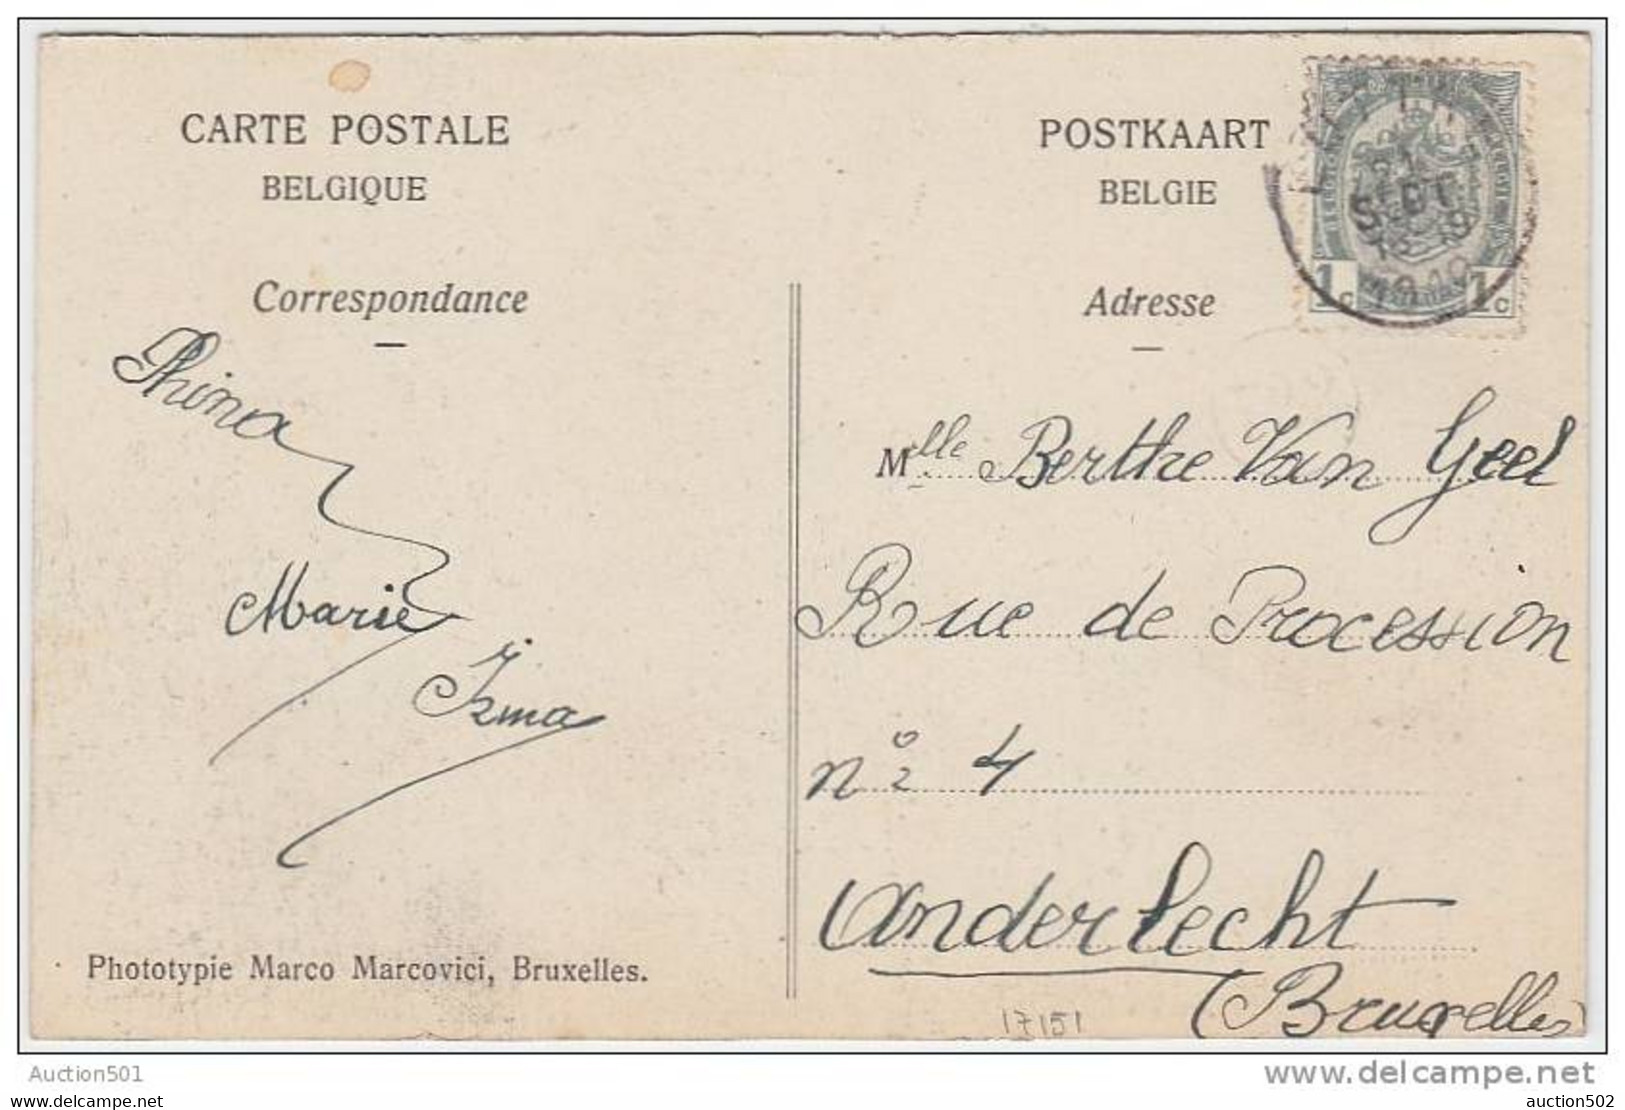 CARTE POSTALE
BELGIQUE
Correspondance
Phina
Marie
Irma
Phototypie Marco Marcovici, Bruxelles.
POSTKAART
BELGIE
Adresse
1c 1c
21
SEPT
Mlle Berthe Van Geel
Rue de Procession
n° 4
Anderlecht
(Bruxelles
17151
www.delcampe.net
Auction501
auction502